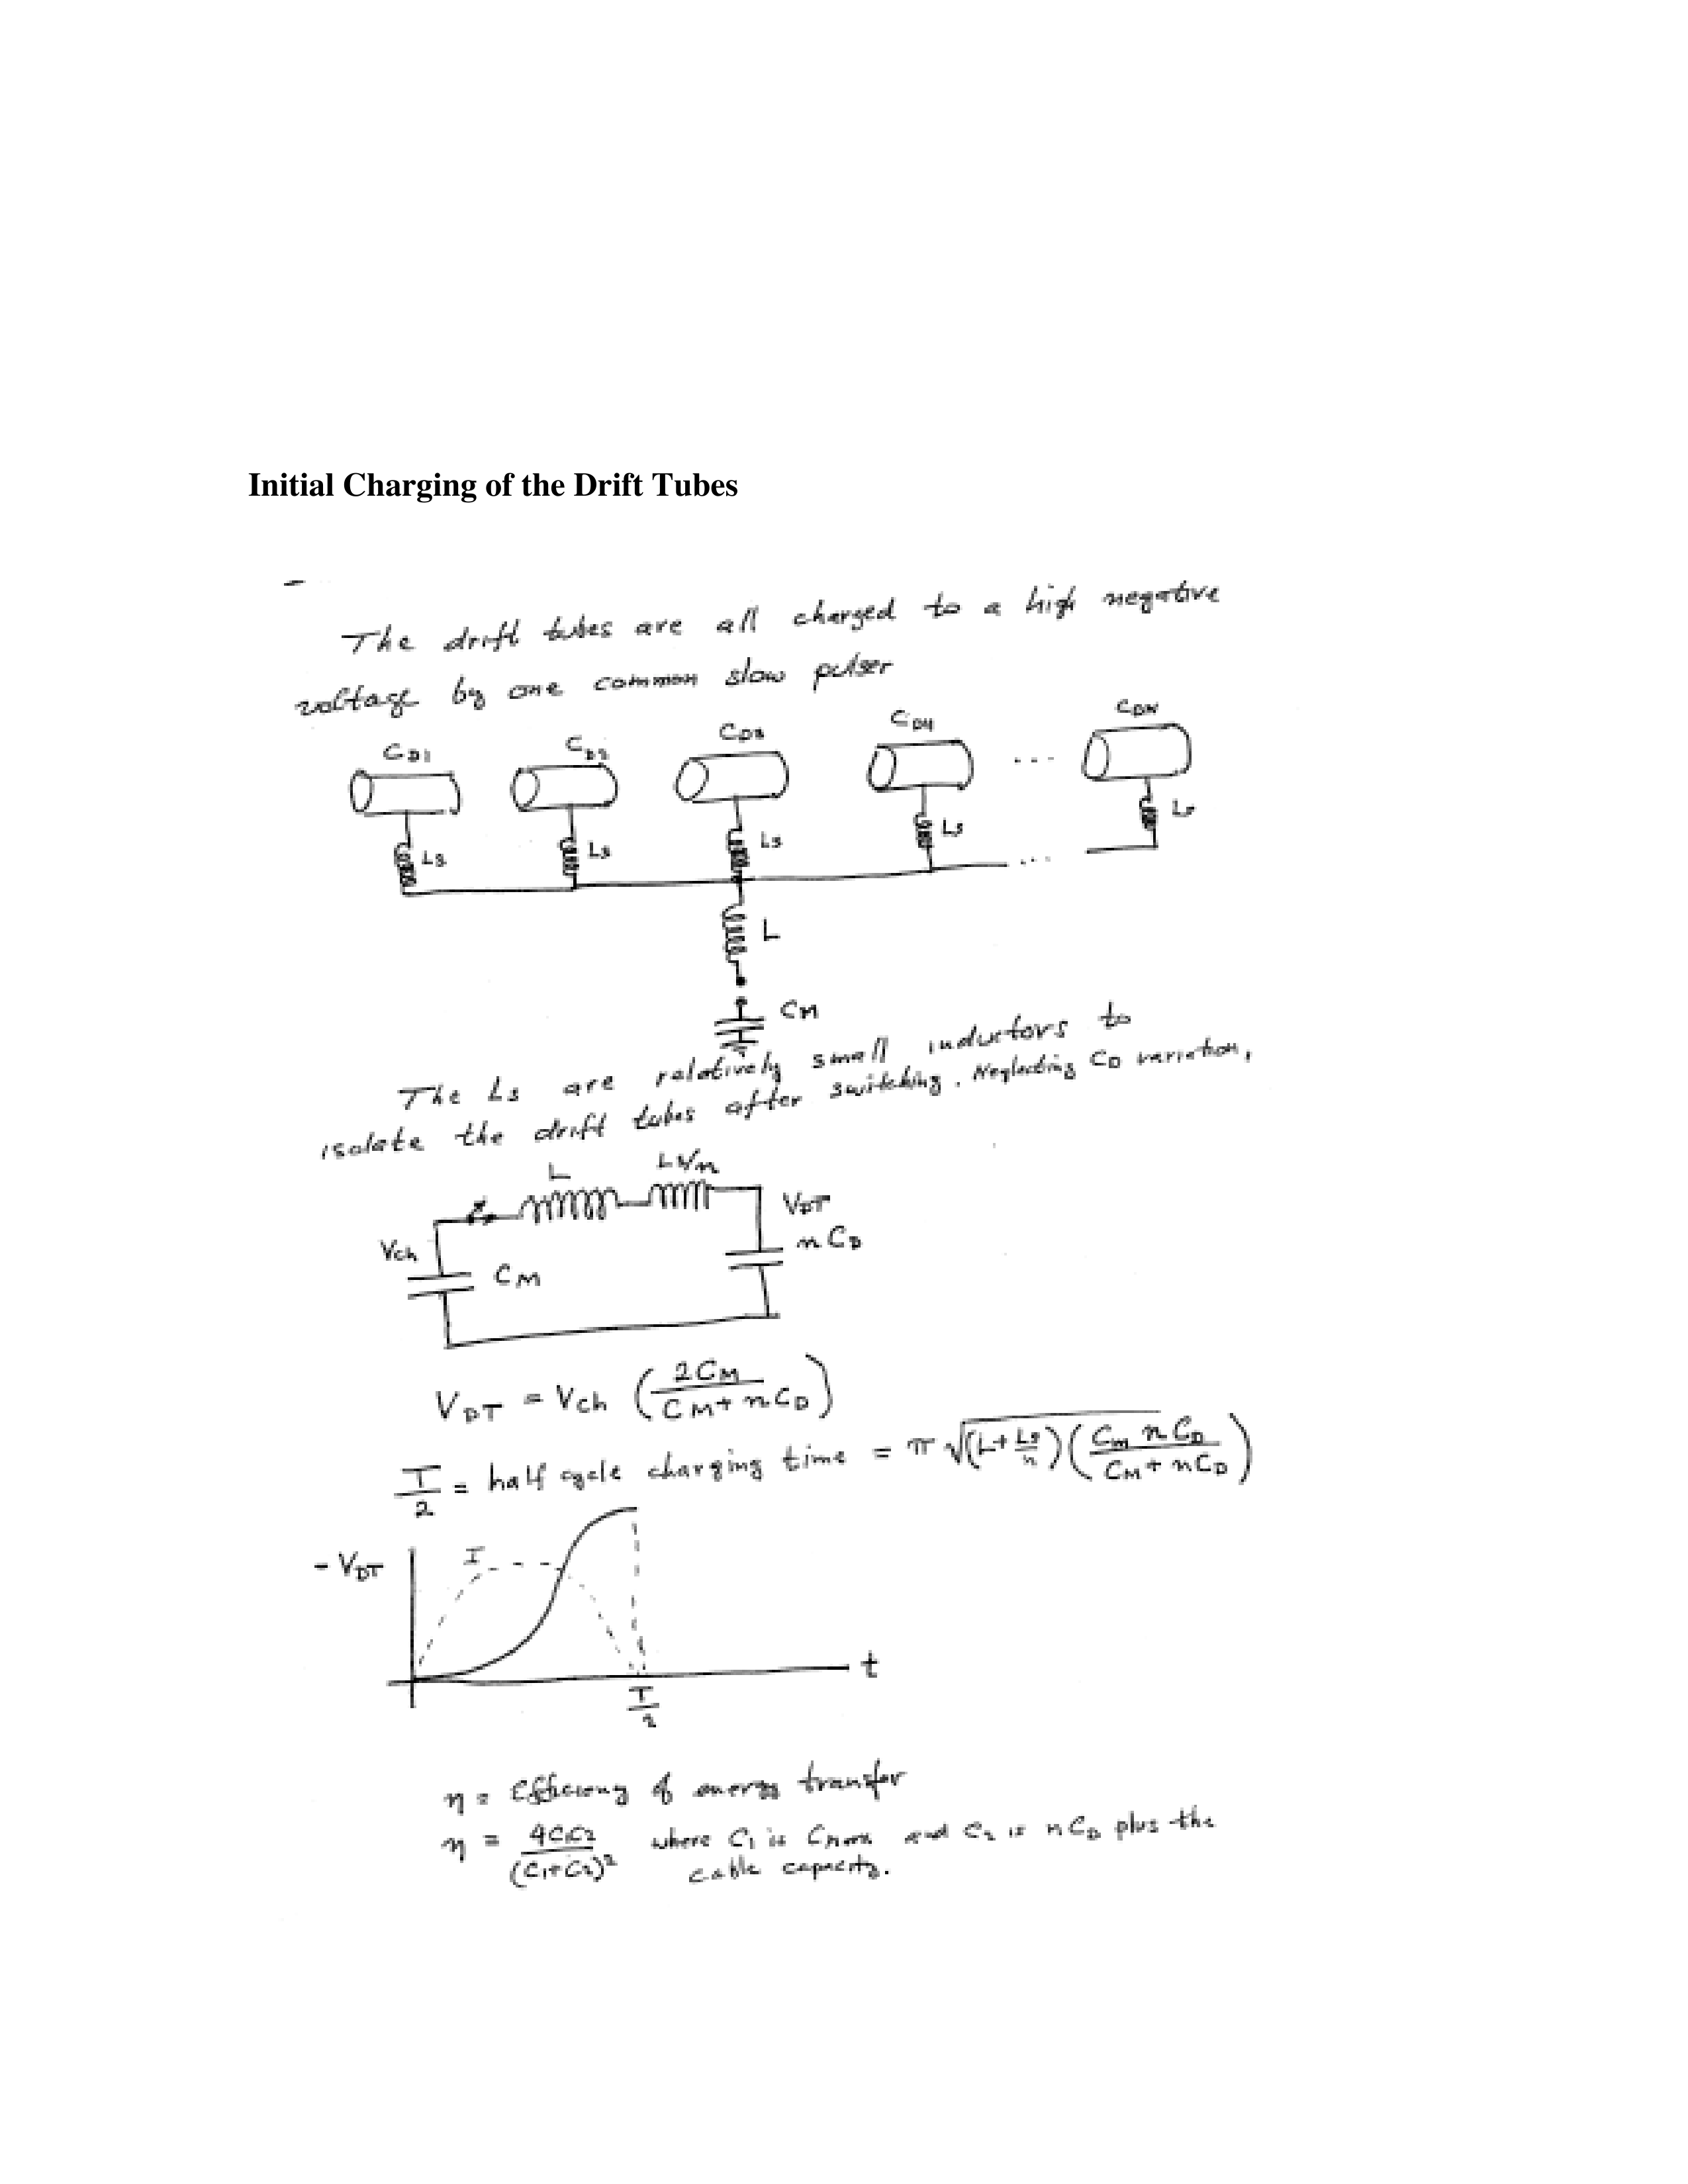 Initial Charging of the Drift Tubes
The drift tubes are all charged to a high negative
voltage by one common slow pulser
CD1 CD2 CD3 CD4 ... CDN
Ls Ls Ls Ls Ls
...
L
CM
The Ls are relatively small inductors to
isolate the drift tubes after switching. Neglecting CD variation,
L Ls/n
Vch CM VDT nCD
VDT = Vch (2CM / (CM + nCD))
T/2 = half cycle charging time = π √((L + Ls/n)(Cm nCD / (CM + nCD)))
- VDT I
t
T/2
η = Efficiency of energy transfer
η = 4C1C2 / (C1+C2)² where C1 is and C2 is nCD plus the
cable capacity.